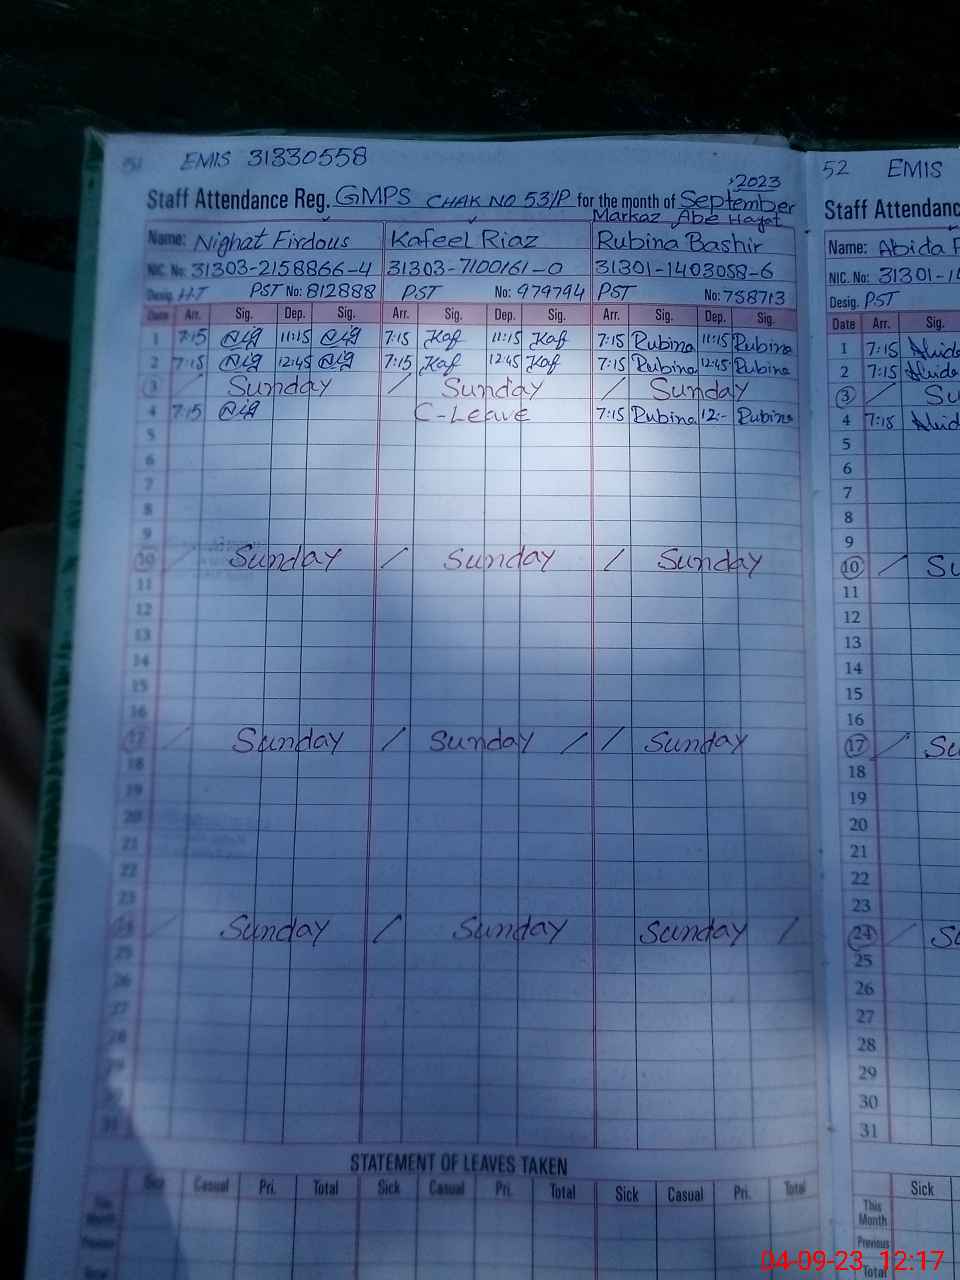 51 EMIS 31330558
Staff Attendance Reg. GMPS CHAK NO 53/P for the month of September 2023
Markaz Abe Hayat
Name: Nighat Firdous Kafeel Riaz Rubina Bashir
NIC. No: 31303-2158866-4 31303-7100161-0 31301-1403058-6
Desig. HT PST No: 812888 PST No: 979794 PST No: 758713
Date Arr. Sig. Dep. Sig. Arr. Sig. Dep. Sig. Arr. Sig. Dep. Sig.
1 7:15 11:15 7:15 Kaf 11:15 Kaf 7:15 Rubina 11:15 Rubina
2 7:15 12:45 7:15 Kaf 12:45 Kaf 7:15 Rubina 12:45 Rubina
3 / Sunday / Sunday / Sunday
4 7:15 C-Leave 7:15 Rubina 12:- Rubina
5
6
7
8
9
10 / Sunday / Sunday / Sunday
11
12
13
14
15
16
17 / Sunday / Sunday / / Sunday
18
19
20
21
22
23
24 / Sunday / Sunday Sunday /
25
26
27
28
31
STATEMENT OF LEAVES TAKEN
Sick Casual Pri. Total Sick Casual Pri. Total Sick Casual Pri. Total
This
Month
Previous
Total
52 EMIS
Staff Attendanc
Name: Abida F
NIC. No: 31301-14
Desig. PST
Date Arr. Sig.
1 7:15 Abid
2 7:15 Abida
3 / Su
4 7:15 Abid
5
6
7
8
9
10 / Su
11
12
13
14
15
16
17 / Su
18
19
20
21
22
23
24 / Su
25
26
27
28
29
30
31
Sick
This
Month
Previous
Total
04-09-23 12:17